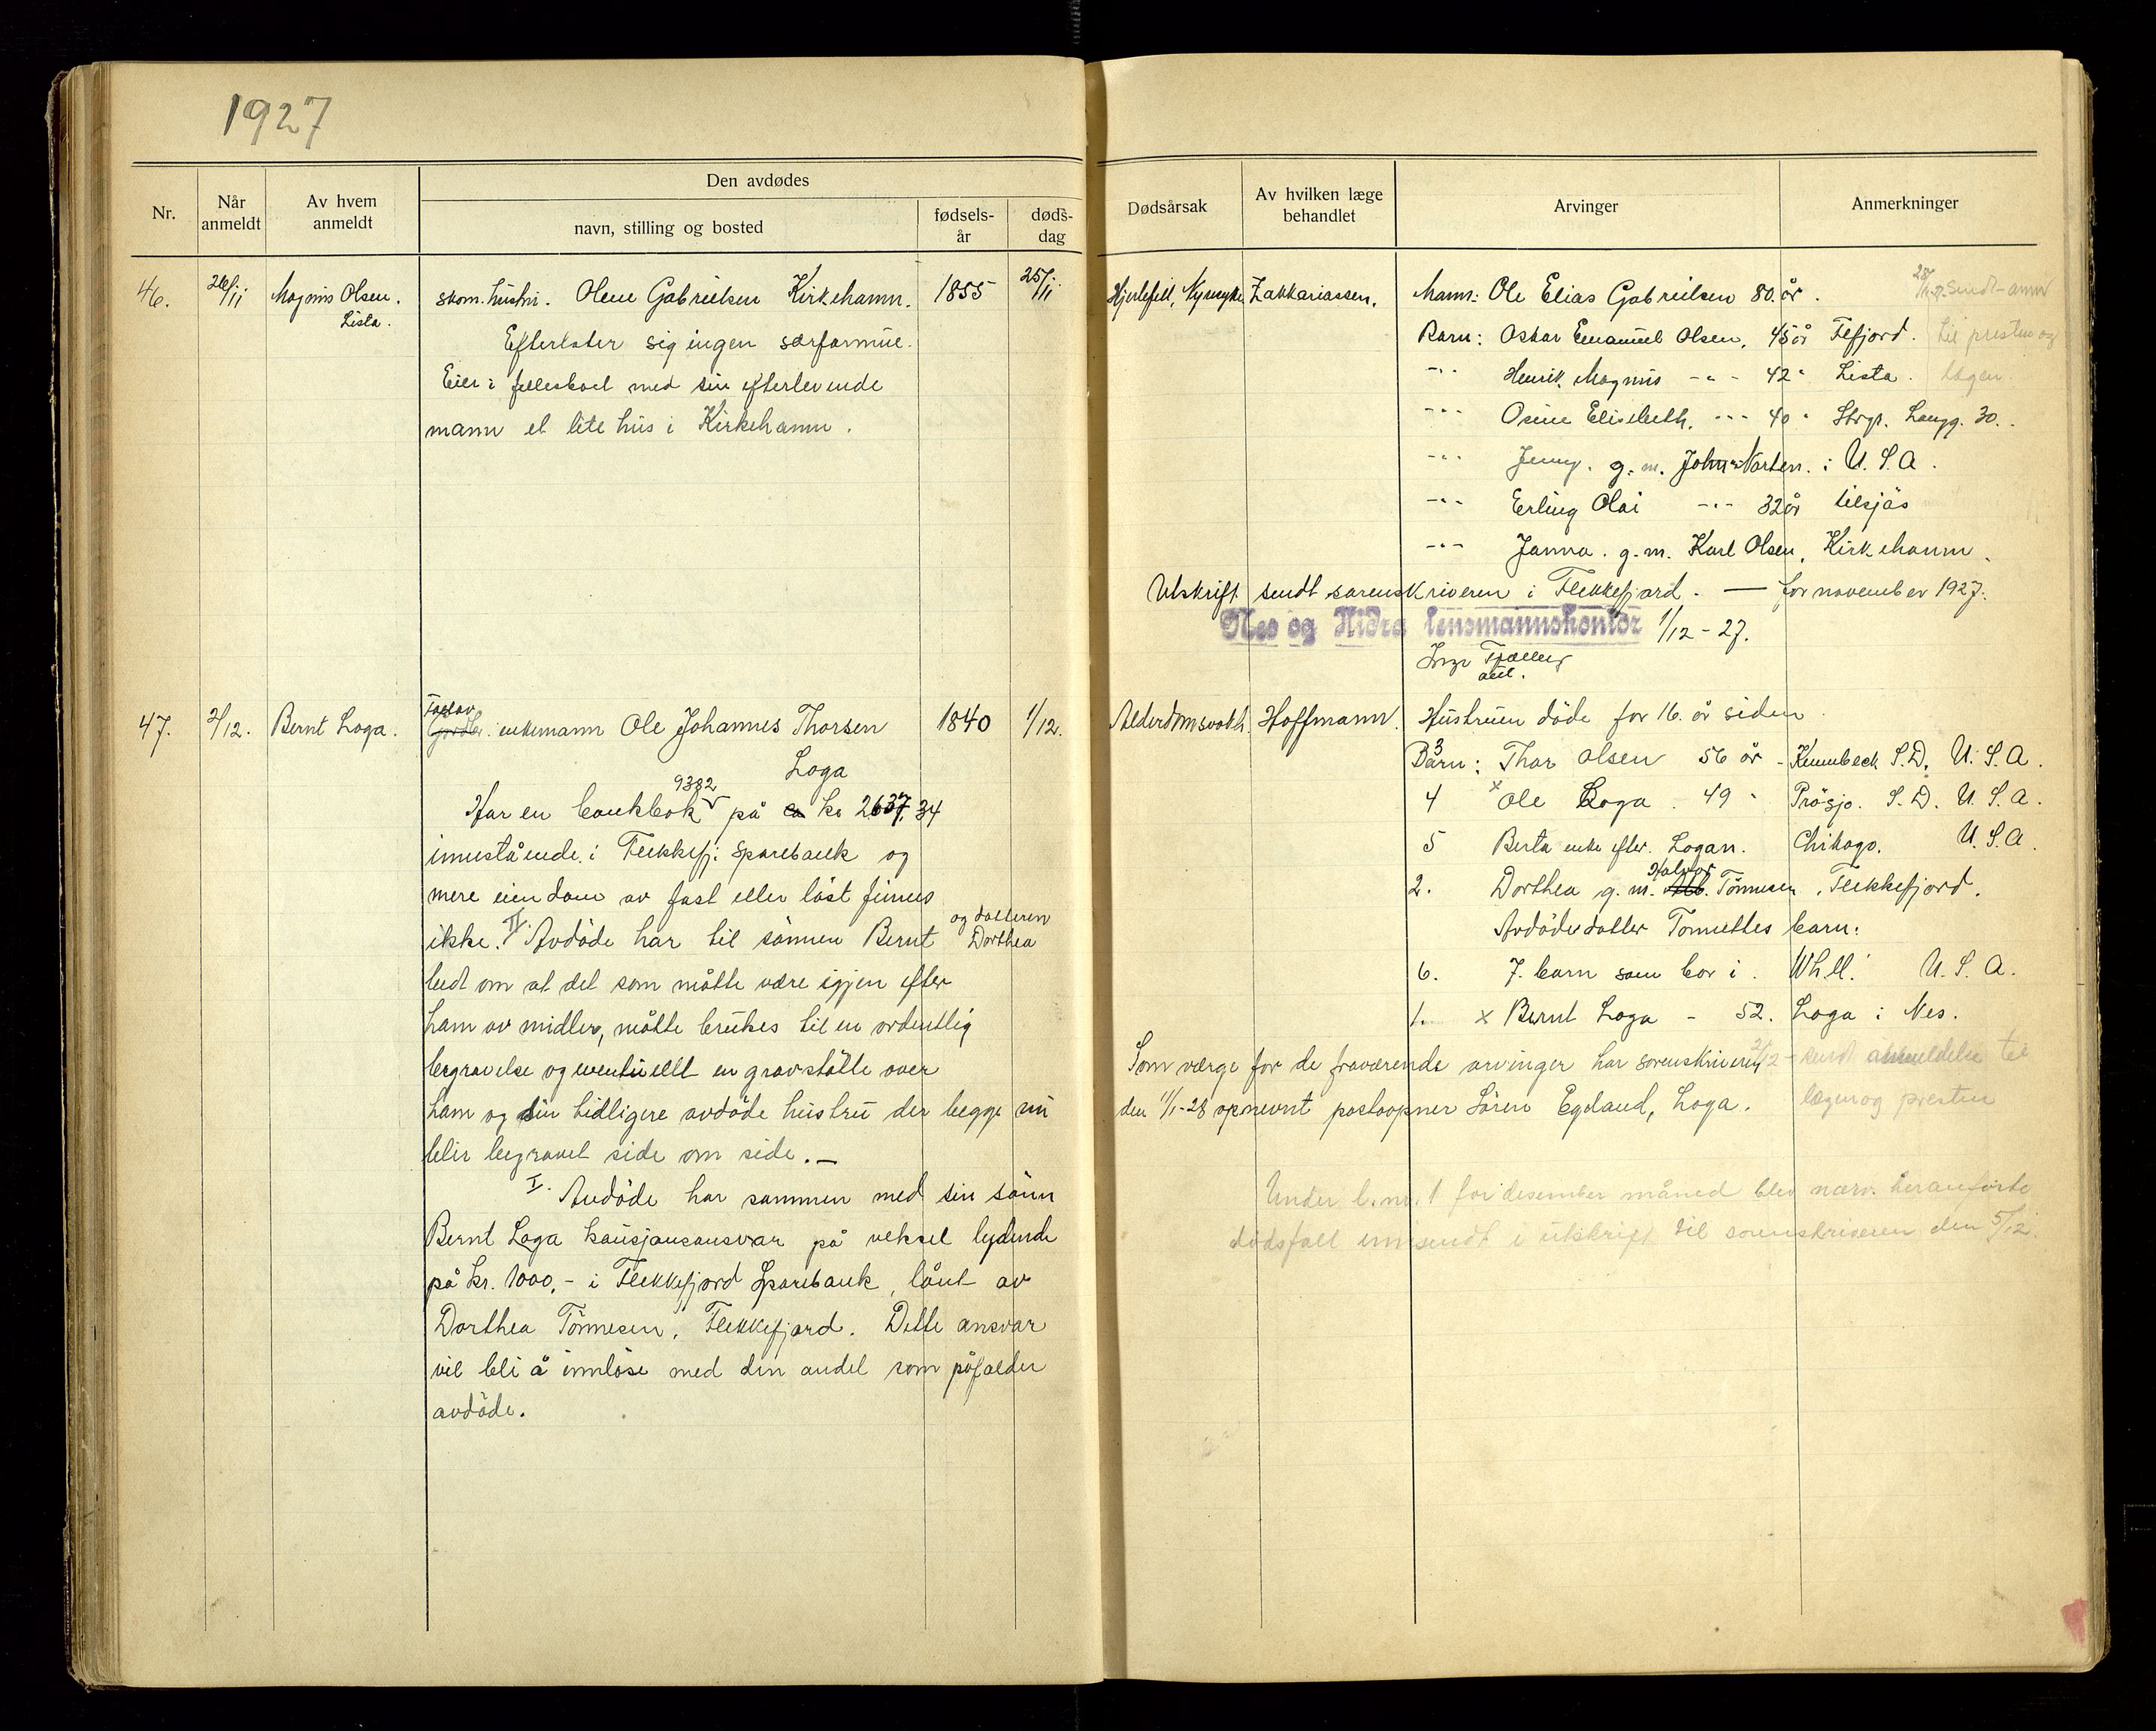 1927
Nr.
Når anmeldt
Av hvem anmeldt
Den avdødes
navn, stilling og bosted
fødsels-år
døds-dag
Dødsårsak
Av hvilken læge behandlet
Arvinger
Anmerkninger
46. 26/11 Magnus Olsen. Lista.
skom. hustru. Olene Gabrielsen Kirkehamn. 1855 25/11
Efterlater sig ingen særformue.
Eier i fellesboet med sin efterlevende
mann et lite hus i Kirkehamn.
Hjertefeil, Nyresyke Zakkariassen.
Mann: Ole Elias Gabrielsen 80. år.
Barn: Oskar Emanuel Olsen, 45 år Flfjord.
-"- Henrik Magnus -"- 42 " Lista.
-"- Osine Elisebeth. -"- 40 " Stvgr. Langg. 30.
-"- Jenny. g. m. John Narten. i U. S. A.
-"- Erling Olai -"- 32 år tilsjös
-"- Janna. g. m. Karl Olsen, Kirkehamn.
28/11-27. sendt anm
til presten og
lægen.
Utskrift sendt sorenskriveren i Flekkefjord. — for november 1927.
Nes og Hidra lensmannskontor 1/12 - 27.
47. 2/12. Bernt Loga.
enkemann Ole Johannes Thorsen 1840 1/12.
Loga
9382
Har en bankbok på kr 2637,34
innestående i Flekkefj. Sparebank og
mere eiendom av fast eller löst finnes
ikke. II. Avdöde har til sönnen Bernt og datteren Dorthea
bedt om at det som måtte være igjen efter
ham av midler, måtte brukes til en ordentlig
begravelse og eventuellt en gravstötte over
ham og sin tidligere avdöde hustru der begge nu
blir begravet side om side. —
I. Avdöde har sammen med sin sönn
Bernt Loga kausjonsansvar på veksel lydende
på kr. 1000,- i Flekkefjord Sparebank, lånt av
Dorthea Tönnesen, Flekkefjord. Dette ansvar
vil bli å innlöse med den andel som påfalder
avdöde.
Alderdomsvakh. Hoffmann. Hustruen döde for 16. år siden.
Barn: 3 Thor Olsen 56 år - Kennebeck S.D. U. S. A.
4 x Ole Loga. 49 " Prösjo. S. D. U. S. A.
5 Berta enke efter. Logan. Chikago. U. S. A.
2. Dorthea g. m. Halvor Tönnesen, Flekkefjord.
Avdödes datter Tonnettes barn:
6. 7. barn som bor i. U. S. A.
1. x Bernt Loga - 52. Loga i Nes.
2/12 - sendt anmeldelse til
lægen og presten
Som værge for de fraværende arvinger har sorenskriveren
den 11/1-28 opnevnt postaapner Sören Egeland, Loga.
Under l. nr. 1 for desember måned blev nærv. heranförte
dödsfall innsendt i utskrift til sorenskriveren den 5/12.